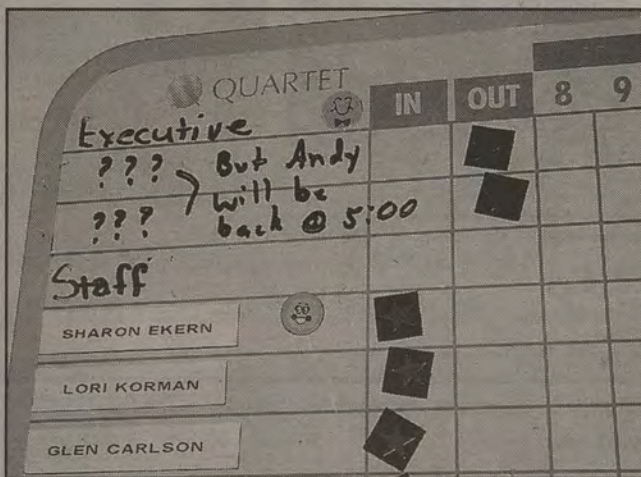 QUARTET
IN OUT 8 9
Executive
??? But Andy
will be
??? back @ 5:00
Staff
SHARON EKERN
LORI KORMAN
GLEN CARLSON